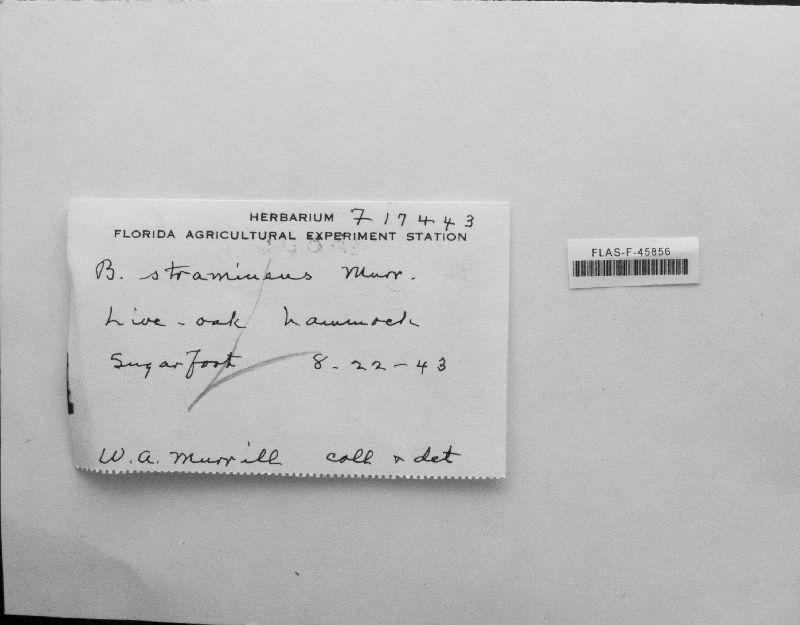 HERBARIUM F 17443
FLORIDA AGRICULTURAL EXPERIMENT STATION
B. stramineus Murr.
Live-oak hammock
Sugarfoot 8-22-43
W. A. Murrill coll & det
FLAS-F-45856